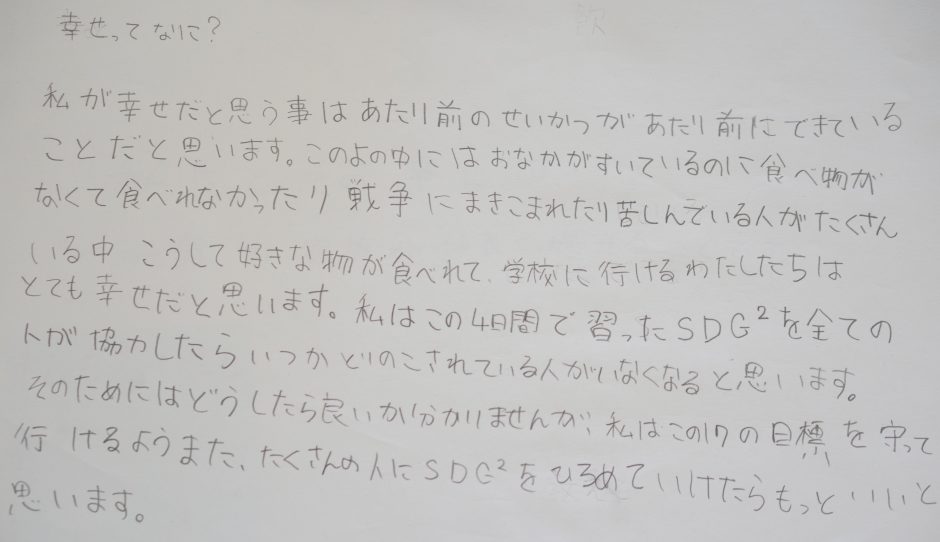 幸せってなに?
私が幸せだと思う事はあたり前のせいかつがあたり前にできている
ことだと思います。このよの中にはおなかがすいているのに食べ物が
なくて食べれなかったり戦争にまきこまれたり苦しんでいる人がたくさん
いる中 こうして好きな物が食べれて、学校に行けるわたしたちは
とても幸せだと思います。私はこの4日間で習ったSDG²を全ての
人が協力したらいつかどりのこされている人がいなくなると思います。
そのためにはどうしたら良いか分かりませんが、私はこの17の目標を守って
行けるようまた、たくさんの人にSDG²をひろめていけたらもっといいと
思います。